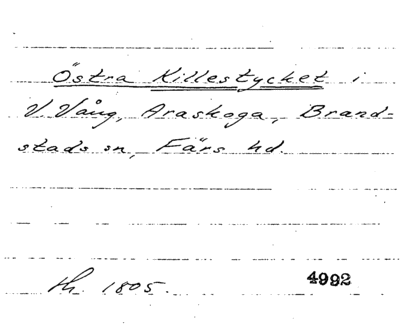 Östra Killestycket i
V Vång, Araskoga, Brand=
stads sn, Färs hd.
th. 1805.
4992